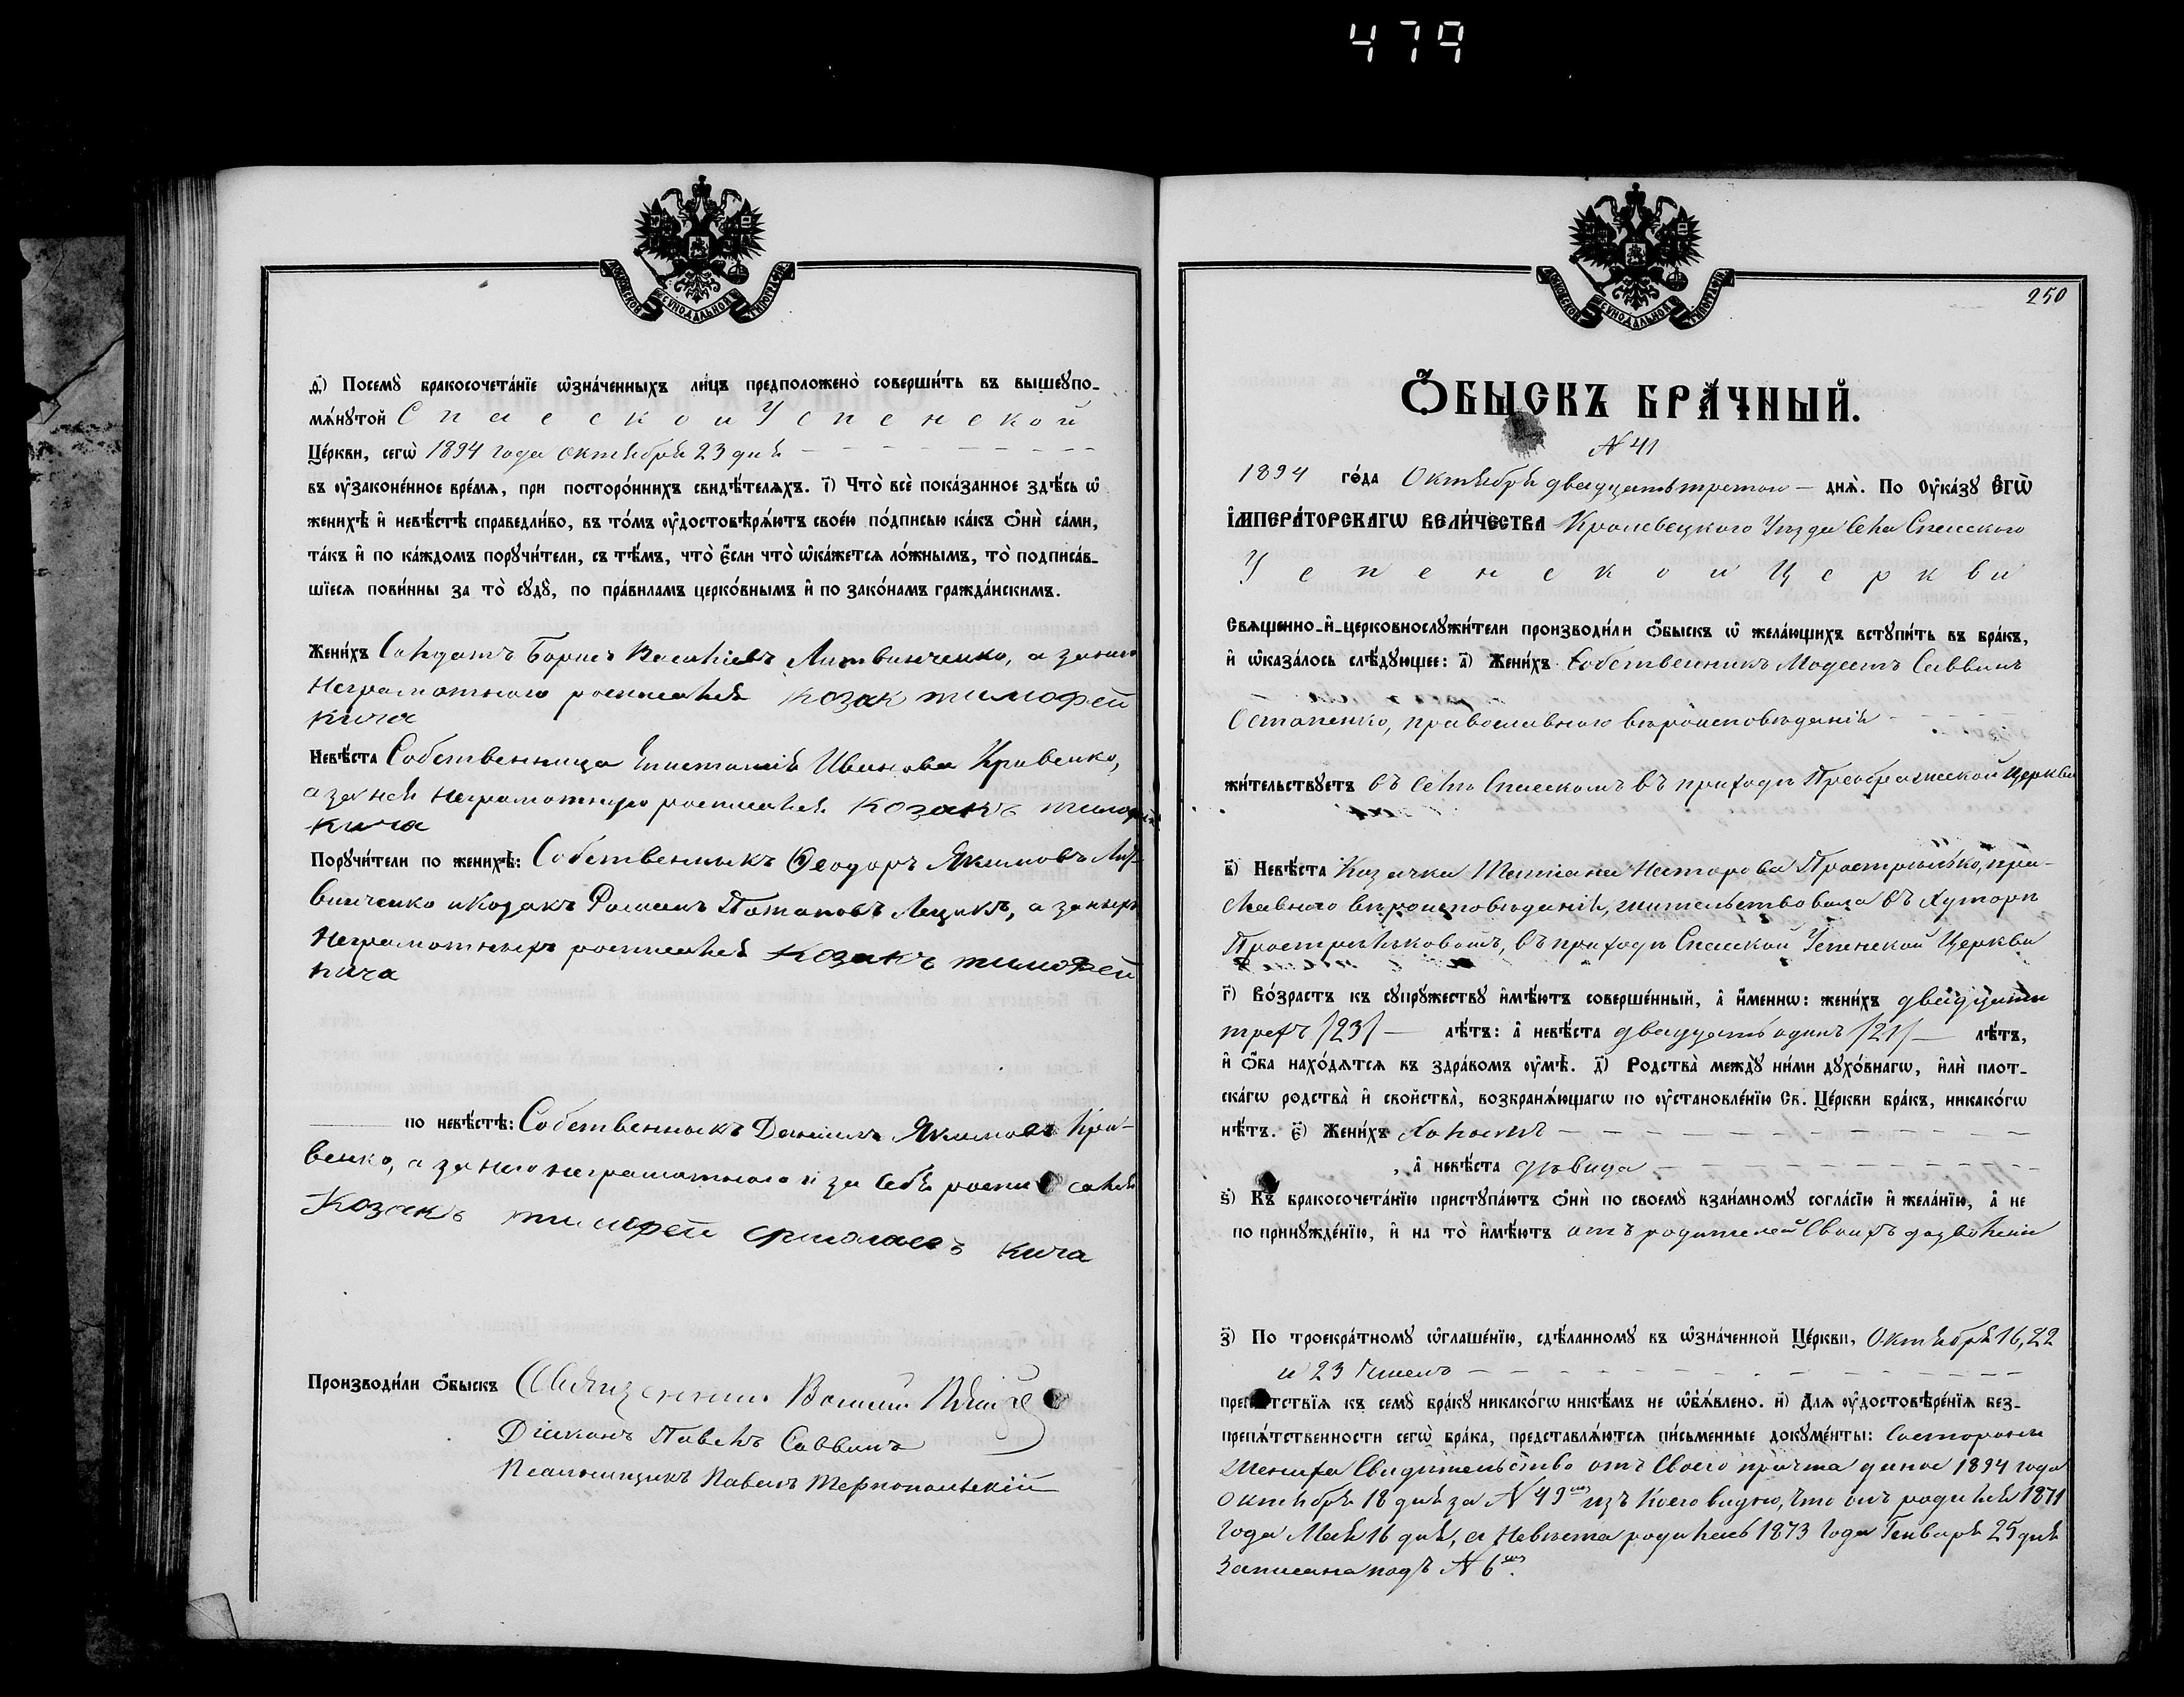 479
МОСКОВСКОЙ СѴНОДАЛЬНОЙ ТИПОГРАФІИ
д҃і) Посемꙋ̀ бракосочета́нїе ѡ҆зна́ченныхъ ли́цъ предположено̀ соверши́ть въ вышеꙋпо-
мѧ́нꙋтой Спасской Успенской
Це́ркви, сегѡ̀ 1894 года Октября 23 дня
въ ᲂу҆законе́нное вре́мѧ, при посторо́ннихъ свидѣ́телѧхъ. і҃) Что̀ всѐ пока́занное здѣ́сь ѡ҆
женихѣ̀ и҆ невѣ́стѣ справедли́во, въ то́мъ ᲂу҆достовѣрѧ́ютъ свое́ю по́дписью ка́къ ѻ҆нѝ са́ми,
та́къ и҆ по ка́ждомъ порꙋчи́тели, съ тѣ́мъ, что̀ є҆́сли что̀ ѡ҆ка́жетсѧ ло́жнымъ, то̀ подписа́в-
шїесѧ пови́нны за то̀ сꙋдꙋ̀, по пра́виламъ церко́внымъ и҆ по зако́намъ гражда́нскимъ.
Жени́хъ Солдатъ Борисъ Васильевъ Литвинченко, а за него
неграмотного росписался козак тимофей
кича
Невѣ́ста Собственница Иванова Кривенко,
а за ней неграмотную росписался козакъ тимофей
кича
Порꙋчи́тели по женихѣ̀: Собственникъ Ѳеодоръ Якимовъ Лит-
винченко и козакъ Романъ Потаповъ Лещикъ, а за нихъ
неграмотныхъ росписался козакъ тимофей
кича
по невѣ́стѣ: Собственникъ Даніилъ Якимовъ Кри-
венко, а за него неграмотного и за себя росписался
Козакъ тимофей кича
Производи́ли ѻ҆́быскъ Священникъ
Діаконъ Павелъ Саввинъ
Псаломщикъ Павелъ Тернопольскій
МОСКОВСКОЙ СѴНОДАЛЬНОЙ ТИПОГРАФІИ
250
Ѻ҆́БЫСКЪ БРА́ЧНЫЙ.
N 41
1894 го́да Октября двадцать третои днѧ̀. По Оу҆ка́зꙋ Є҆ГѠ̀
І҆МПЕРА́ТОРСКАГѠ ВЕЛИ́ЧЕСТВА Кролевецкого Уѣзда села Спасского
Успенскои Церкви
Свѧщенно-и҆-церковнослꙋжи́тели производи́ли ѻ҆́быскъ ѡ҆ жела́ющихъ встꙋпи́ть въ бра́къ,
и҆ ѡ҆каза́лось слѣ́дꙋющее: а҃) Жени́хъ Собственникъ Модестъ Саввинъ
Остапенко, православного вѣроисповѣданія
жи́тельствꙋетъ въ селѣ Спасскомъ въ приходѣ Преображенской Церкви
в҃) Невѣ́ста Козачка Татіана Несторова Прострѣлко, пра-
славного вѣроисповѣданія, жительствовала въ Хуторѣ
Прострѣлковомъ, въ приходѣ Спасской Успенской Церкви
г҃) Во́зрастъ къ сꙋпрꙋ́жествꙋ и҆мѣ́ютъ соверше́нный, а҆ и҆́меннѡ: жени́хъ двадцати
трехъ /23/ лѣ́тъ: а҆ невѣ́ста двадцать одинъ /21/ лѣ́тъ,
и҆ ѻ҆́ба нахо́дѧтсѧ въ здра́вомъ ᲂу҆мѣ̀. д҃) Родства̀ междꙋ̀ ни́ми дꙋхо́внагѡ, и҆лѝ плот-
ска́гѡ родства̀ и҆ свойства̀, возбранѧ́ющагѡ по ᲂу҆становле́нїю Св. Це́ркви бра́къ, никако́гѡ
нѣ́тъ. є҃) Жени́хъ Холостъ
, а҆ невѣ́ста дѣвица
ѕ҃) Къ бракосочета́нїю пристꙋпа́ютъ ѻ҆нѝ по своемꙋ̀ взаи́мномꙋ согла́сїю и҆ жела́нїю, а҆ не
по принꙋжде́нїю, и҆ на то̀ и҆мѣ́ютъ отъ родителей своихъ дозволеніи
з҃) По троекра́тномꙋ ѡ҆глаше́нїю, сдѣ́ланномꙋ въ ѡ҆зна́ченной Це́ркви, Октября 16, 22
и 23 Чиселъ
препѧ́тствїѧ къ семꙋ̀ бра́кꙋ никако́гѡ никѣ́мъ не ѡ҆б̾ѧ́влено. и҃) Длѧ ᲂу҆достовѣре́нїѧ без-
препѧ́тственности сегѡ̀ бра́ка, представлѧ́ютсѧ пи́сьменные докꙋме́нты: Состороны
Жениха Свидѣтельство отъ своего причта даное 1894 года
Октября 18 дня за N 49 изъ коего видно, что онъ родился 1871
года Мая 16 дня, а Невѣста родилась 1873 года Генваря 25 дня
записана подъ N 6